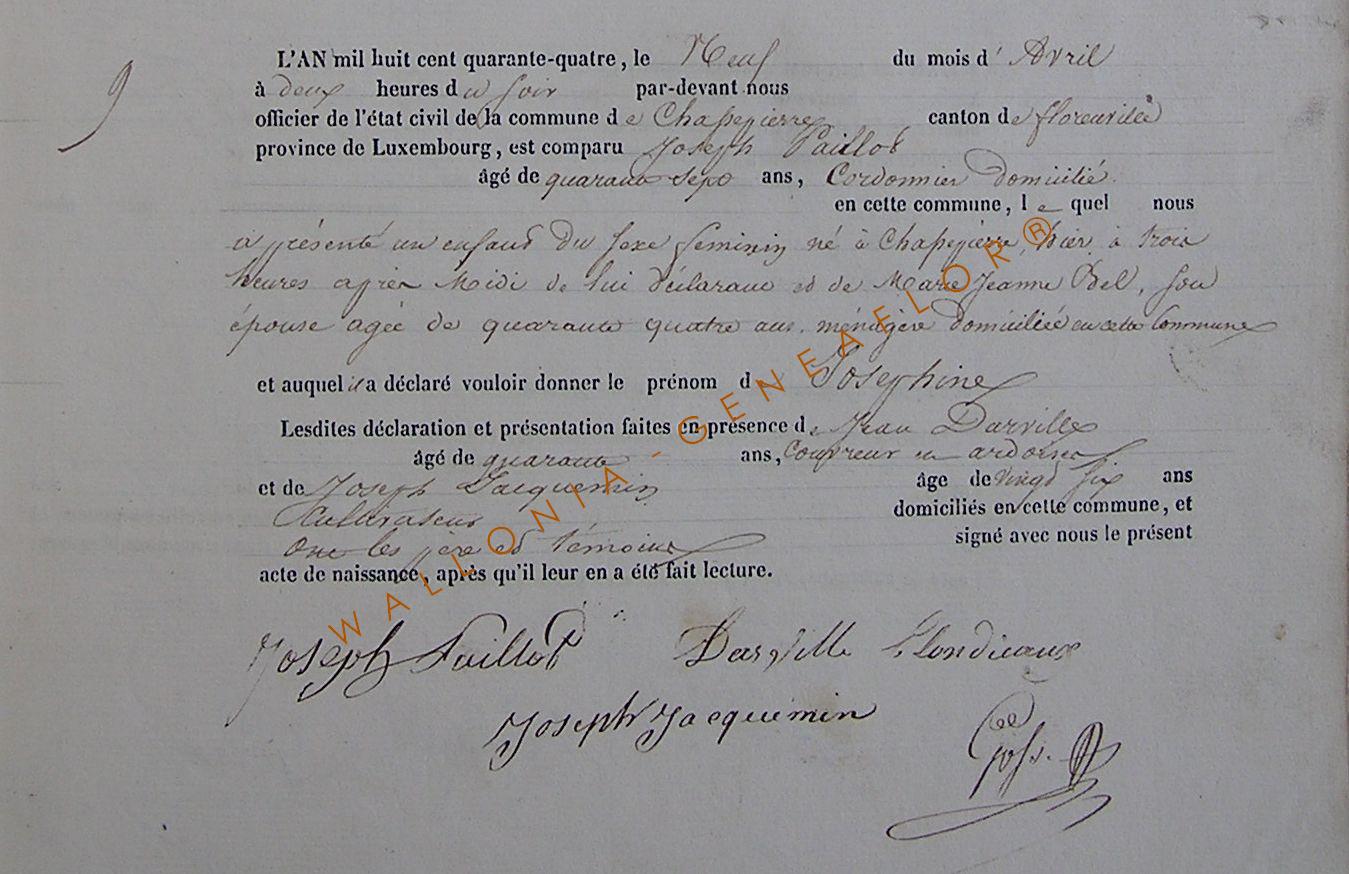 9
L'AN mil huit cent quarante-quatre, le Neuf du mois d' Avril
à deux heures du soir par-devant nous
officier de l'état civil de la commune de Chassepierre canton de florenville
province de Luxembourg, est comparu Joseph Paillot
âgé de quarante sept ans, Cordonnier domicilié
en cette commune, le quel nous
a présenté un enfant du sexe feminin né à Chassepierre, hier à trois
heures après Midi de lui déclarant et de Marie Jeanne Del, son
épouse agée de quarante quatre ans, ménagère domiciliée en cette Commune
et auquel il a déclaré vouloir donner le prénom d Josephine
Lesdites déclaration et présentation faites en présence de Jean Darville
âgé de quarante ans, Couvreur en ardoises
et de Joseph Jacquemin âge de vingt six ans
Cultivateur domiciliés en cette commune, et
Ont les père et témoins signé avec nous le présent
acte de naissance, après qu'il leur en a été fait lecture.
Joseph Paillot Darville
Joseph Jacquemin
WALLONIA-GENEAFLOR®